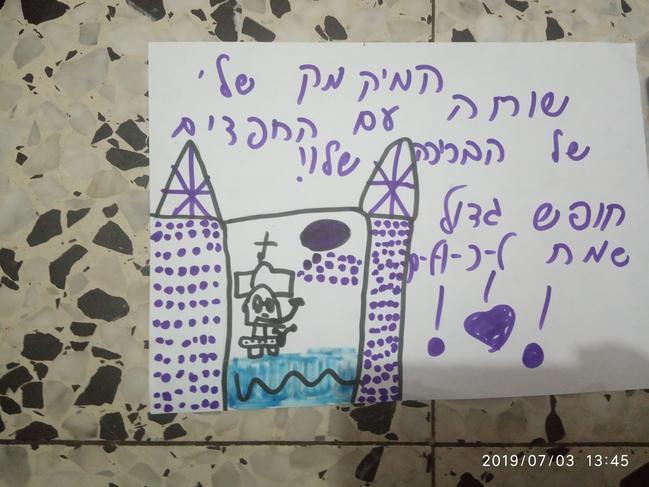 המיק מק שלי
שוחה עם החפדים
של הבריכה שלו!
חופש גדול
שמח
2019/07/03 13:45